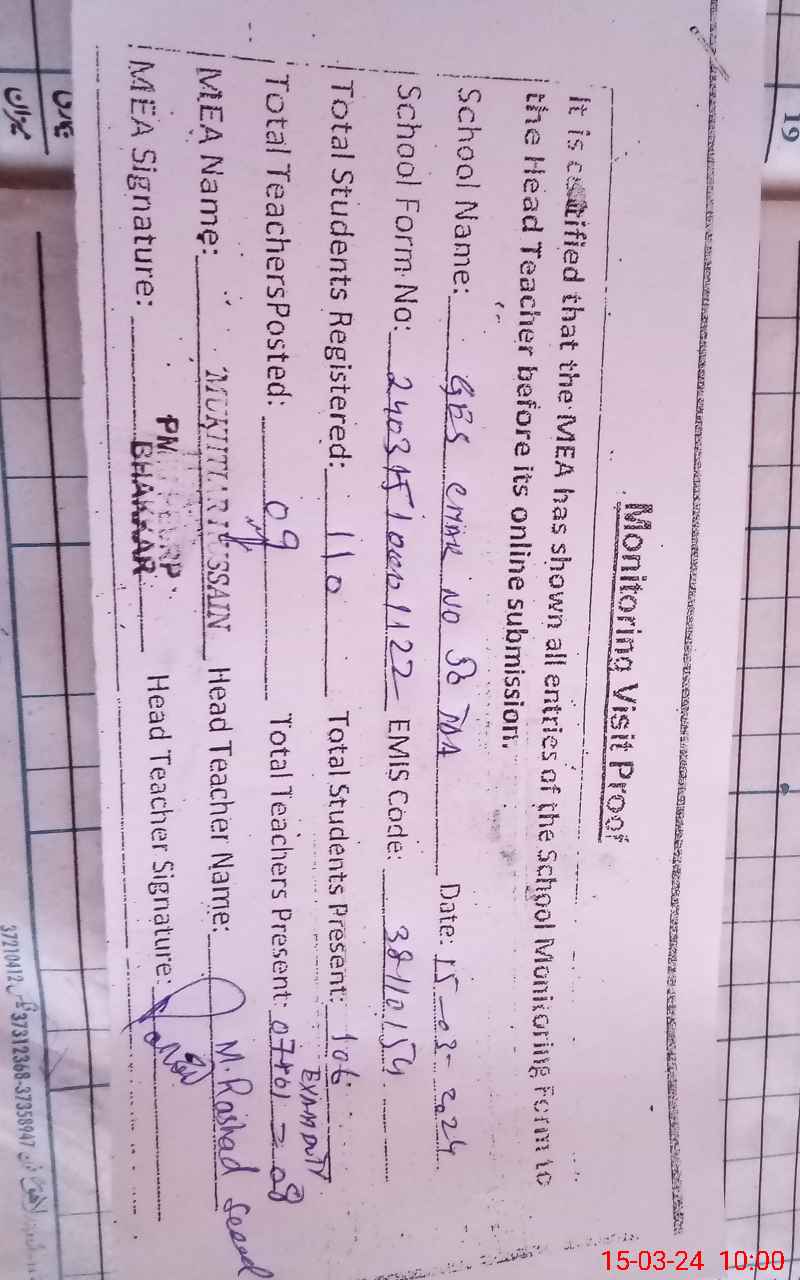 19
Monitoring Visit Proof
It is certified that the MEA has shown all entries of the School Monitoring Form to
the Head Teacher before its online submission.
School Name: GES CHAK NO 56 TDA Date: 15-03-2024
School Form No: EMIS Code: 38110154
Total Students Registered: 110 Total Students Present: 106
EXAM DUTY
Total Teachers Posted: 09 Total Teachers Present: 07+01=08
MEA Name: MUKHTIAR HUSSAIN Head Teacher Name: M. Rashad Saeed
MEA Signature: BHAKKAR Head Teacher Signature:
37210412 37312368-37358947
15-03-24 10:00